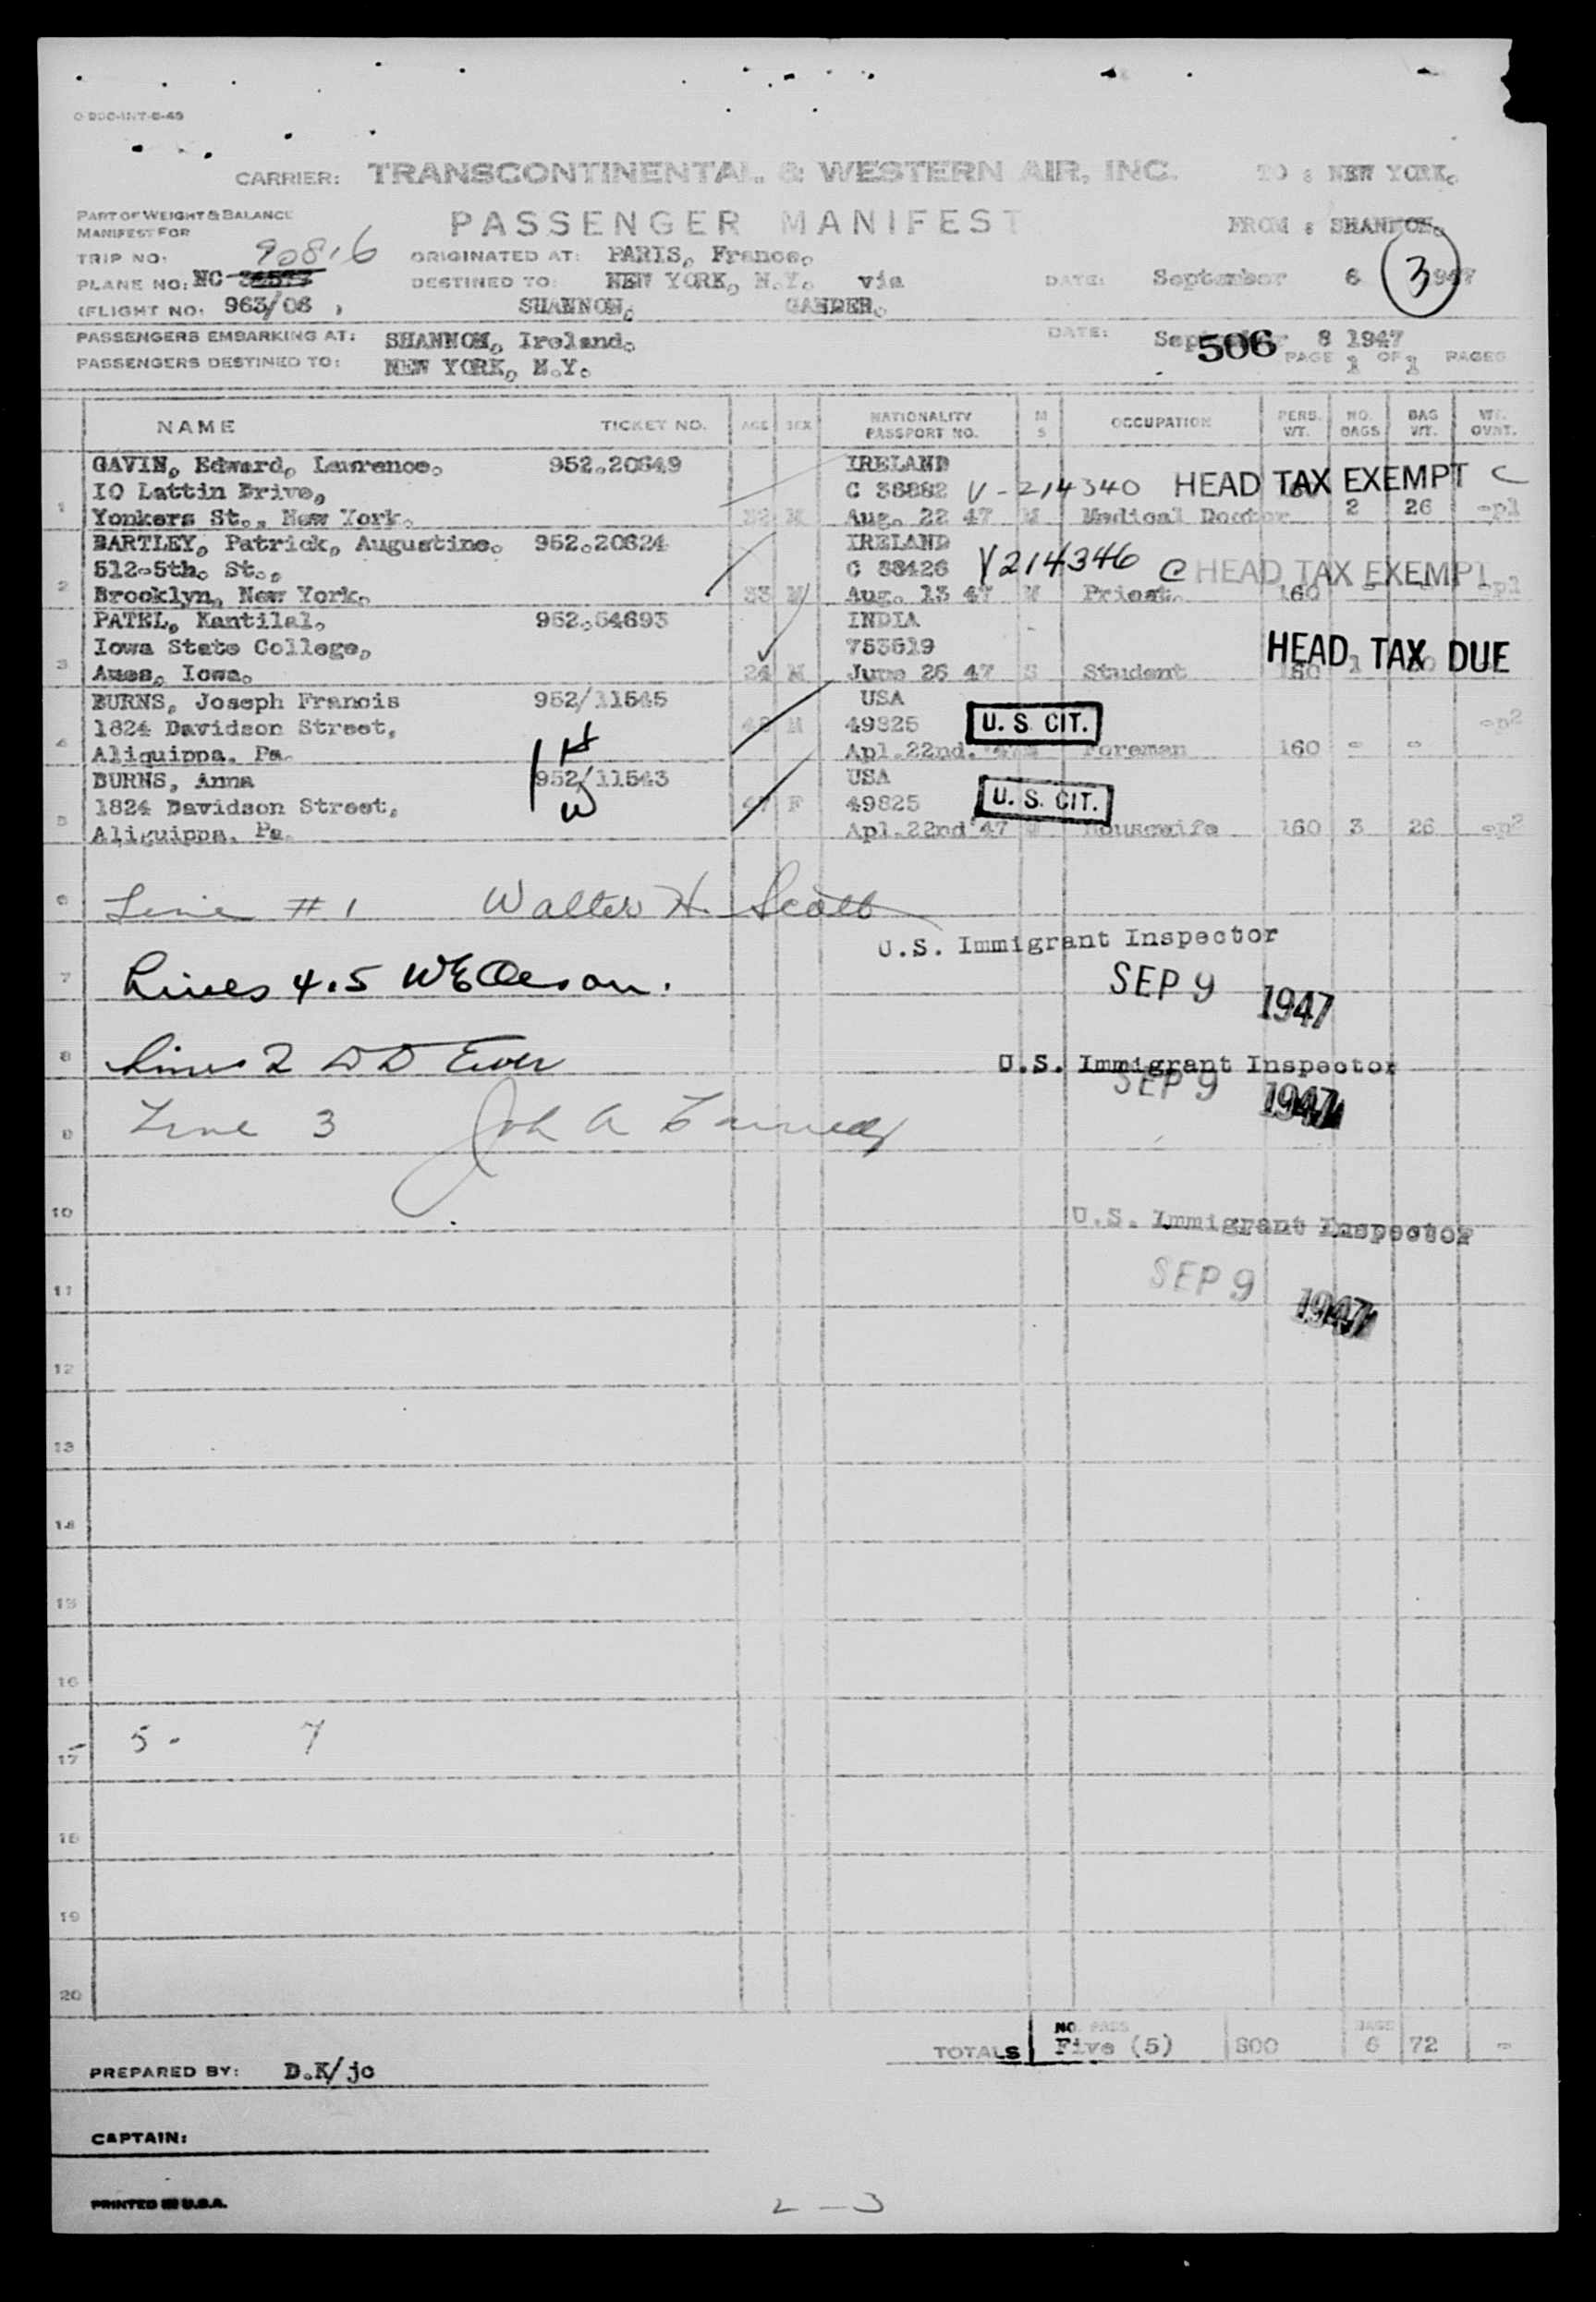 CARRIER: TRANSCONTINENTAL & WESTERN AIR, INC. TO : NEW YORK.
PART OF WEIGHT & BALANCE
MANIFEST FOR
PASSENGER MANIFEST FROM : SHANNON.
TRIP NO: 90816 ORIGINATED AT: PARIS, France.
PLANE NO: NC DESTINED TO: NEW YORK, N.Y. via DATE: September 6 1947
3
(FLIGHT NO: 963/06 ) SHANNON, GANDER.
PASSENGERS EMBARKING AT: SHANNON, Ireland. DATE: September 8 1947
506
PASSENGERS DESTINED TO: NEW YORK, N.Y. PAGE 1 OF 1 PAGES
NAME TICKET NO. AGE SEX NATIONALITY PASSPORT NO. M S OCCUPATION PERS. WT. NO. BAGS BAG WT. WT. OVNT.
GAVIN, Edward, Laurence. 952.20649 IRELAND
10 Lattin Drive, C 36882 V-214340 HEAD TAX EXEMPT C
1 Yonkers St., New York. 32 M Aug. 22 47 M Medical Doctor 2 26 -pl
BARTLEY, Patrick, Augustine. 952.20624 IRELAND
512-5th. St., C 38426 V214346 C HEAD TAX EXEMPT
2 Brooklyn, New York. 33 M Aug. 13 47 Priest. 160 - - -pl
PATEL, Kantilal. 952.54693 INDIA
Iowa State College, 753619 HEAD TAX DUE
3 Ames, Iowa. 24 M June 26 47 S Student 150 1
BURNS, Joseph Francis 952/11545 USA
1824 Davidson Street, 48 M 49825 U. S. CIT. -p2
4 Aliquippa. Pa. H Apl.22nd.'47 M Foreman 160 - -
BURNS, Anna 952/11543 USA
1824 Davidson Street, W 47 F 49825 U. S. CIT.
5 Aliquippa. Pa. Apl.22nd'47 M Housewife 160 3 26 -p2
6 Line #1 Walter H. Scott
U.S. Immigrant Inspector
7 Lines 4.5 SEP 9 1947
8 Line 2 U.S. Immigrant Inspector
SEP 9 1947
9 Line 3
10 U.S. Immigrant Inspector
11 SEP 9 1947
12
13
14
15
16
17 5. 7
18
19
20
TOTALS NO. PASS Five (5) 800 BAGS 6 72 -
PREPARED BY: D.K/jc
CAPTAIN:
PRINTED IN U.S.A.
2 - 3